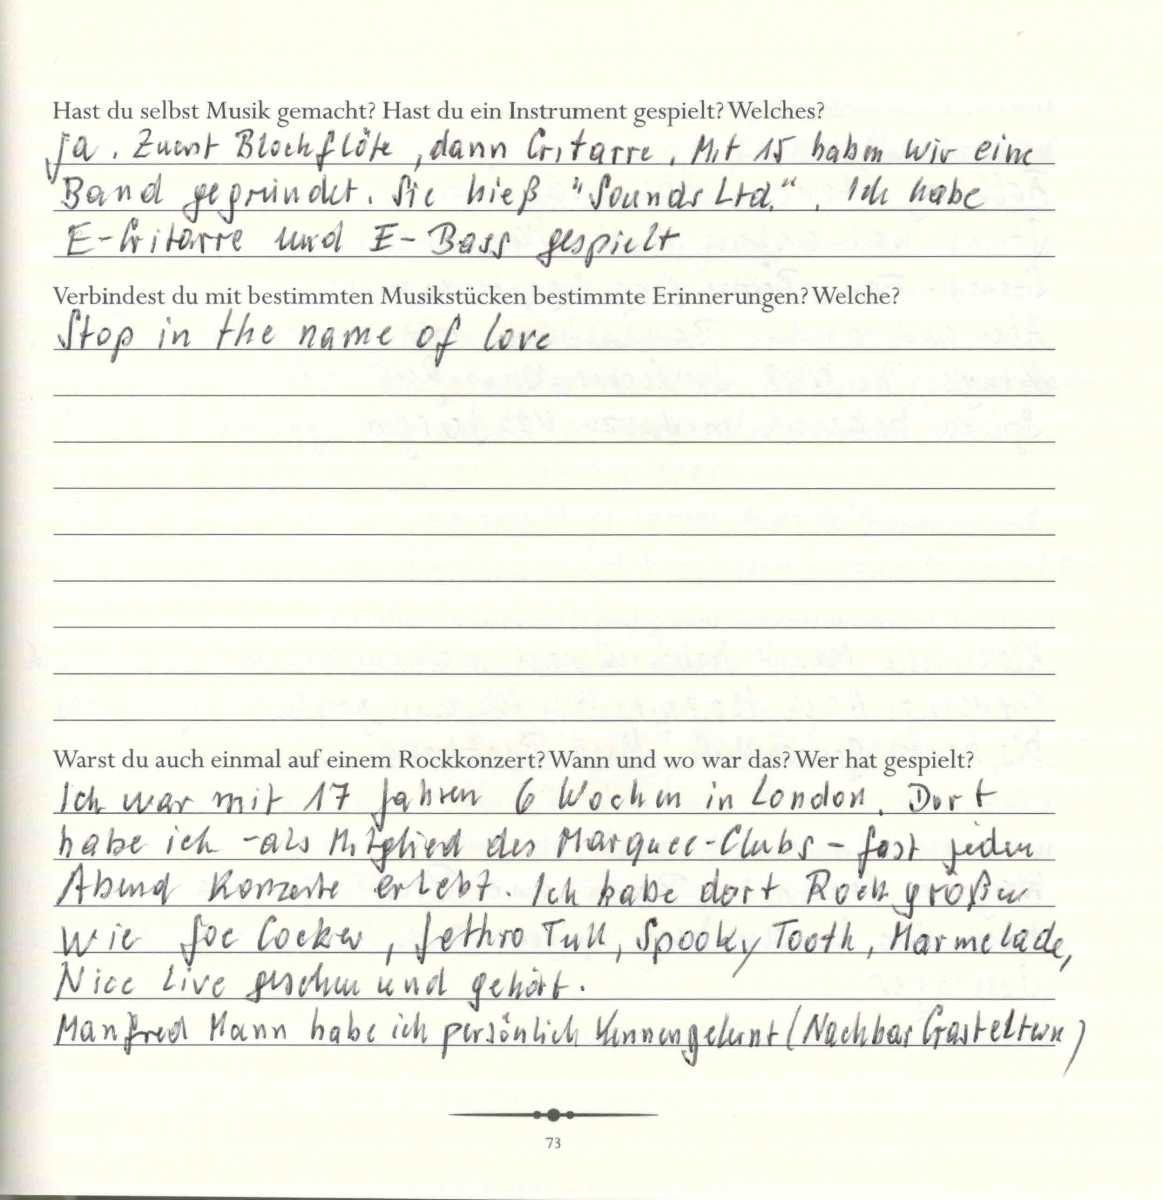 Hast du selbst Musik gemacht? Hast du ein Instrument gespielt? Welches?
Ja. Zuerst Blockflöte, dann Gitarre. Mit 15 haben wir eine
Band gegründet. Sie hieß "Sounds Ltd.". Ich habe
E-Gitarre und E-Bass gespielt
Verbindest du mit bestimmten Musikstücken bestimmte Erinnerungen? Welche?
Stop in the name of love
Warst du auch einmal auf einem Rockkonzert? Wann und wo war das? Wer hat gespielt?
Ich war mit 17 Jahren 6 Wochen in London. Dort
habe ich - als Mitglied des Marquee-Clubs - fast jeden
Abend Konzerte erlebt. Ich habe dort Rockgrößen
wie Joe Cocker, Jethro Tull, Spooky Tooth, Marmelade,
Nice Live gesehen und gehört.
Manfred Mann habe ich persönlich kennengelernt (Nachbar Gasteltern)
73